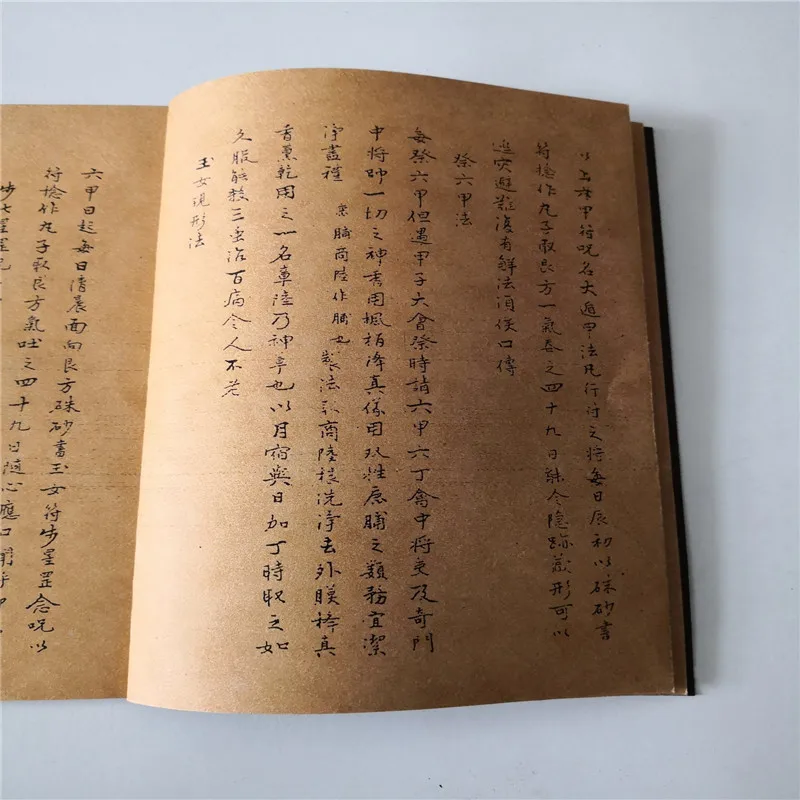 以上六甲符呪名大遁甲法凡行持之將每日辰初以硃砂書
符捻作丸子取艮方一氣吞之四十九日能令隱跡藏形可以
逃災避難復有鮮法須侯口傳
祭六甲法
每祭六甲但遇甲子大會祭時請六甲六丁禽中將吏及奇門
中將帥一切之神香用楓柏降真儀用双牲鹿脯之類務宜潔
淨盡禮 祭脯商陸作脯也 製法取商陸根洗淨去外膜降真
香薰乾用之一名章陸乃神草也以月宿與日加丁時取之如
久服能殺三虫治百病令人不老
玉女現形法
六甲日起每日清晨面向艮方硃砂書玉女符步星罡念呪以
符捻作丸子取艮方氣吐之四十九日隨心應口
步七星罡